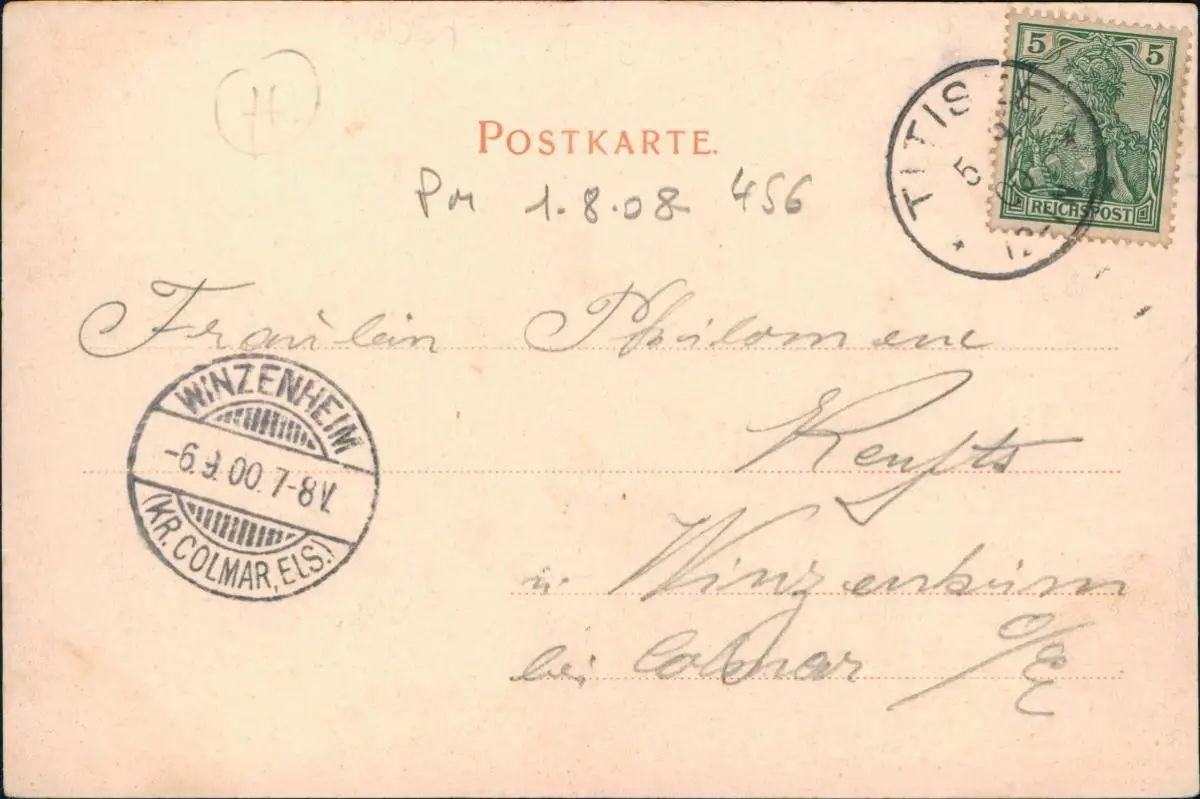 H
POSTKARTE.
Pm 1.8.08 456
TITISEE
5
5 5
REICHSPOST
Fräulein Philomene
WINZENHEIM
-6.9.00.7-8V.
(KR. COLMAR, ELS.)
in Winzenheim
bei Colmar